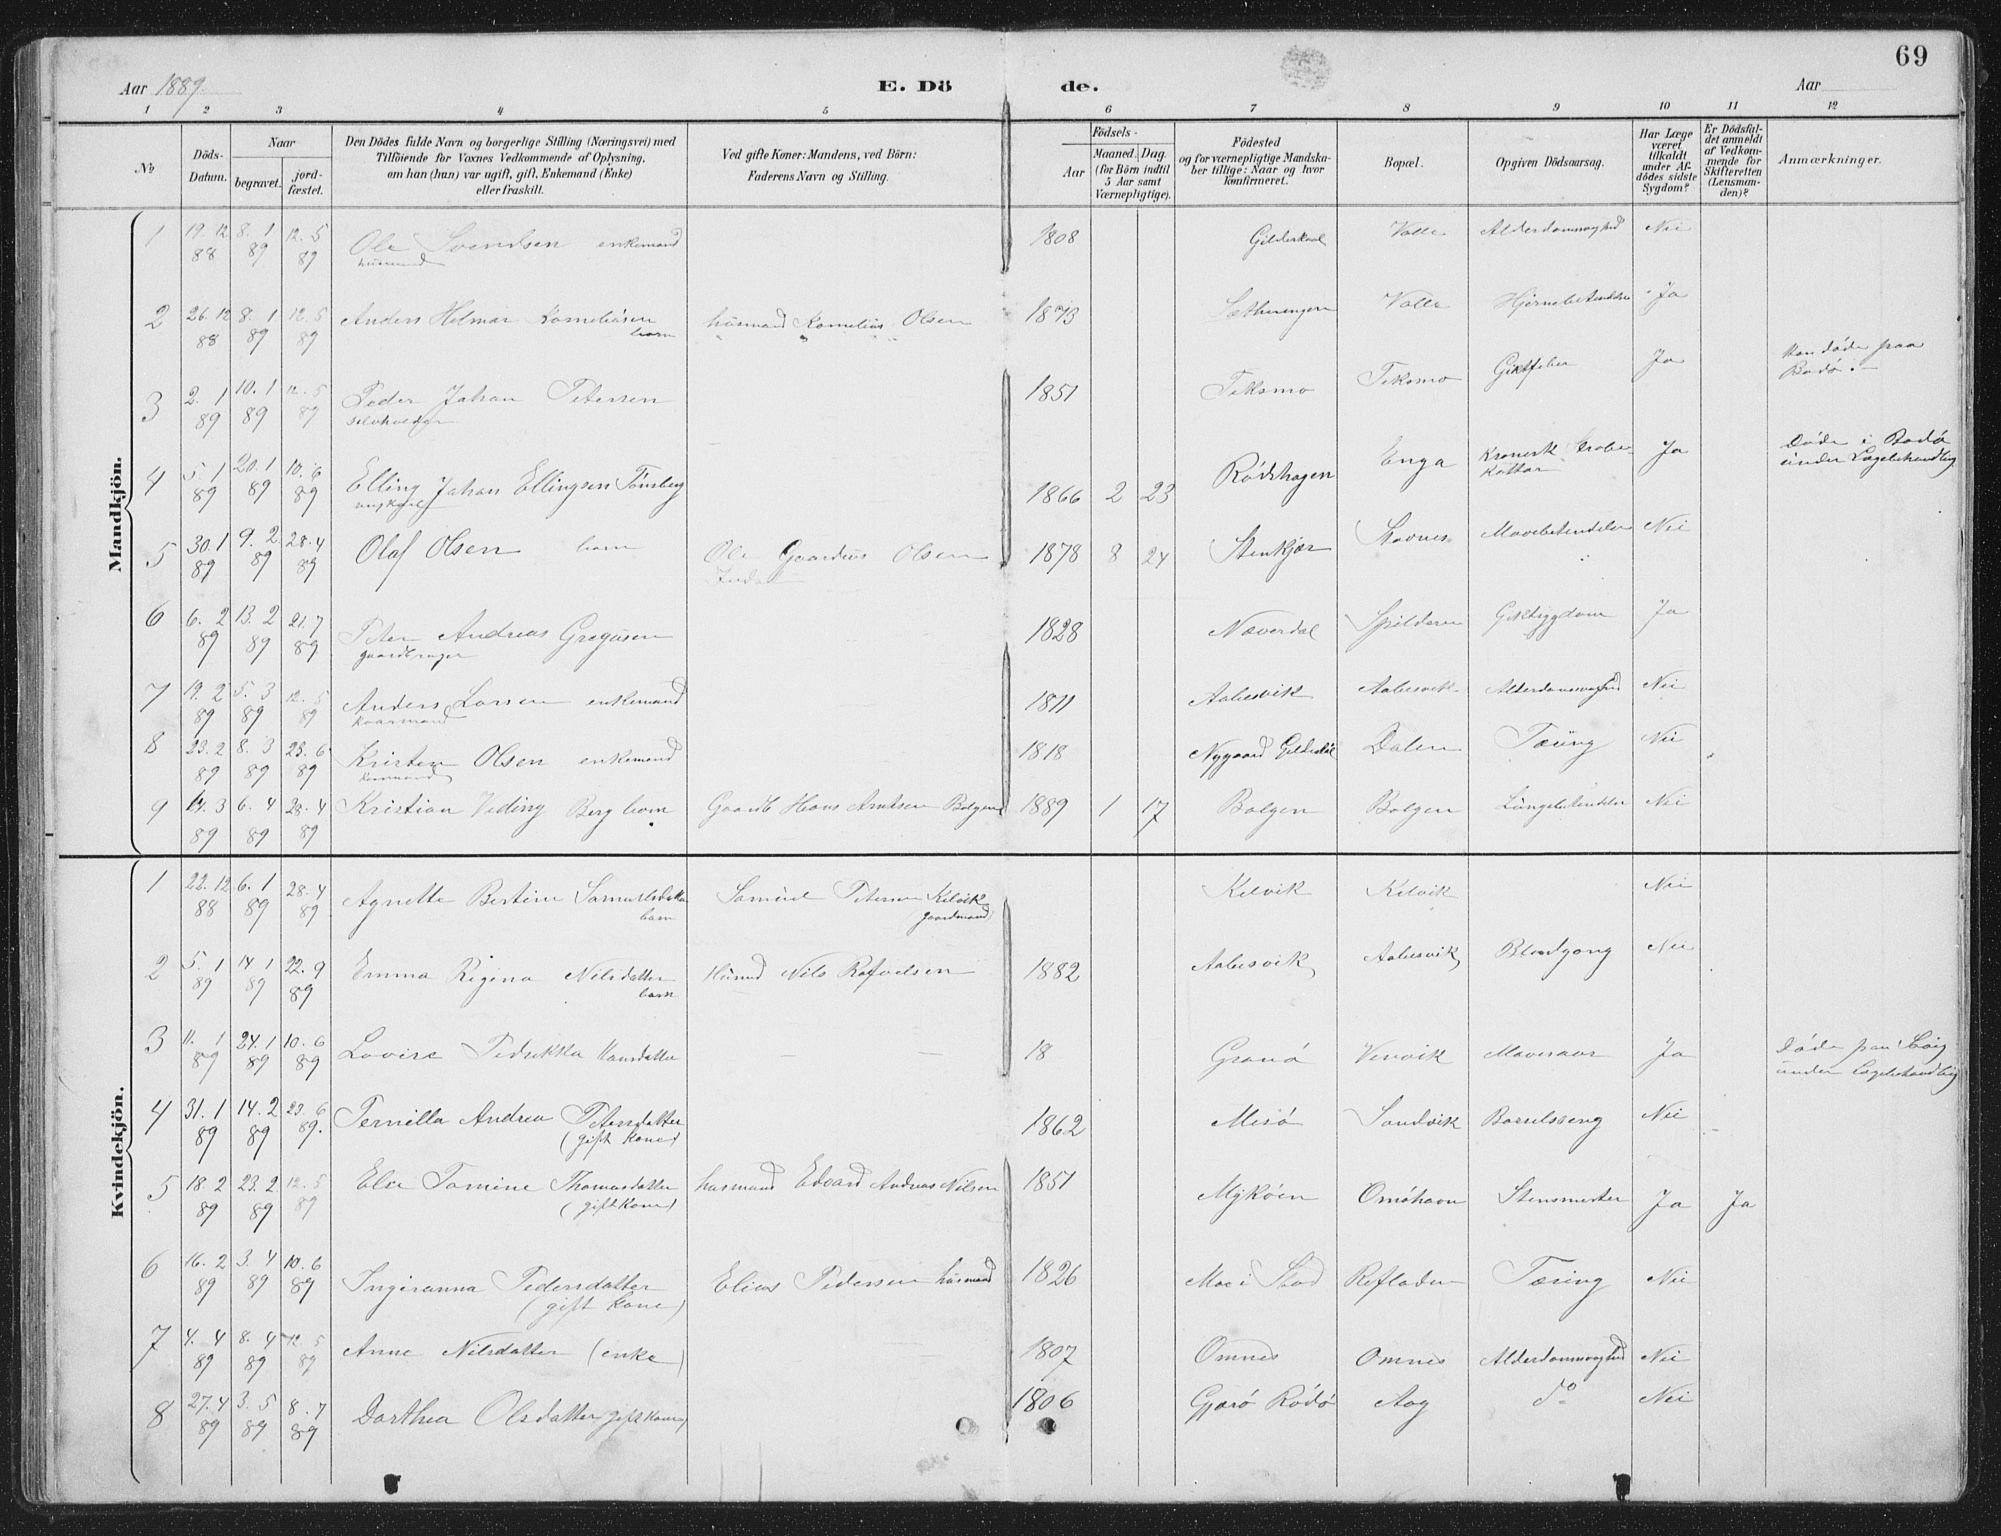 69
Aar 1889.
E. Dö de.
Aar
1 2 3 4 5 6 7 8 9 10 11 12
No
Döds-Datum.
Naar
begravet.
jord-fæstet.
Den Dödes fulde Navn og borgerlige Stilling (Næringsvei) med
Tilföiende for Voxnes Vedkommende af Oplysning,
om han (hun) var ugift, gift, Enkemand (Enke)
eller fraskilt.
Ved gifte Koner: Mandens, ved Börn:
Faderens Navn og Stilling.
Födsels-
Aar
Maaned. Dag.
(for Börn indtil
5 Aar samt
Værnepligtige).
Födested
og for værnepligtige Mandska-
ber tillige: Naar og hvor
konfirmeret.
Bopæl.
Opgiven Dödsaarsag.
Har Læge
været
tilkaldt
under Af-
dödes sidste
Sygdom?
Er Dödsfal-
det anmeldt
af Vedkom-
mende for
Skifteretten
(Lensman-
den)?
Anmærkninger.
Mandkjön.
1 19.12 88 8.1 89 12.5 89 Ole Svendsen enkemand husmand 1808 Gilderskaal Valle Alderdomssvaghed Nei
2 26.12 88 8.1 89 12.5 89 Anders Hilmar Korneliúsen barn húsmand Kornelius Olsen 1873 Valle Hjernebetændelse Ja
3 2.1 89 10.1 89 12.5 89 Peder Johan Petersen 1851 Teksmo Teksmo Giktfeber Ja Han døde paa Bodø.
4 5.1 89 20.1 89 10.6 89 Elling Johan Ellingsen Tønsberg ungkarl 1866 2 23 Rødshagen Enga Kronisk Ja Døde i Bodø under Lægebehandling
5 30.1 89 9.2 89 28.4 89 Olaf Olsen barn Ole Olsen 1878 8 24 Stenkjær Stavnes Mavebetændelse Nei
6 6.2 89 13.2 89 21.7 89 Peter Andreas Gregusen gaardbruger 1828 Næverdal Spilderen Giktsygdom Ja
7 19.2 89 5.3 89 12.5 89 Anders Larsen enkemand kaarmand 1811 Aalesvik Aalesvik Alderdomssvaghed Nei
8 23.2 89 8.3 89 23.6 89 Kristen Olsen enkemand 1818 Nygaard Dalen Tæring Nei
9 14.3 89 6.4 89 28.4 89 Kristian Berg barn Gaardb Hans Arntsen Bolgen 1889 1 17 Bolgen Bolgen Lungebetændelse Nei
Kvindekjön.
1 22.12 88 6.1 89 28.4 89 Agnette Bertine Samuelsdatter barn Samuel Petersen Kilvik (gaardmand) Kilvik Kilvik Nei
2 5.1 89 14.1 89 22.9 89 Emma Regina Nilsdatter barn Húsmd Nils Rafaelsen 1882 Aalesvik Aalesvik Blodgang Nei
3 11.1 89 24.1 89 10.6 89 Lovise Fedrikka Hansdatter — — 18 Granø Venvik Mavesaar Ja Døde paa under Lægebehandling
4 31.1 89 14.2 89 23.6 89. Pernilla Andrea Petersdatter (gift Kone) 1862 Mesø Sandvik Barselsseng Nei
5 18.2 89 23.2 89 12.5 89 Else Tomine Thomasdatter (gift Kone) husmand Edvard Andreas Nilsen 1851 Mykøen Omøhavn Stensmerter Ja Ja
6 16.2 89 3.4 89 10.6 89 Ingeranna Pedersdatter (gift Kone) Elias Pedersen húsmand 1826 Mo i Stod Refladen Tæring Nei
7 4.4 89 8.4 89 12.5 89 Anne Nilsdatter (enke) 1807 Omnes Omnes Alderdomssvaghed Nei
8 27.4 89 3.5 89 8.7 89 Dorthea Olsdatter gift Kone) 1806 Gjærø Rødø Aag do Nei